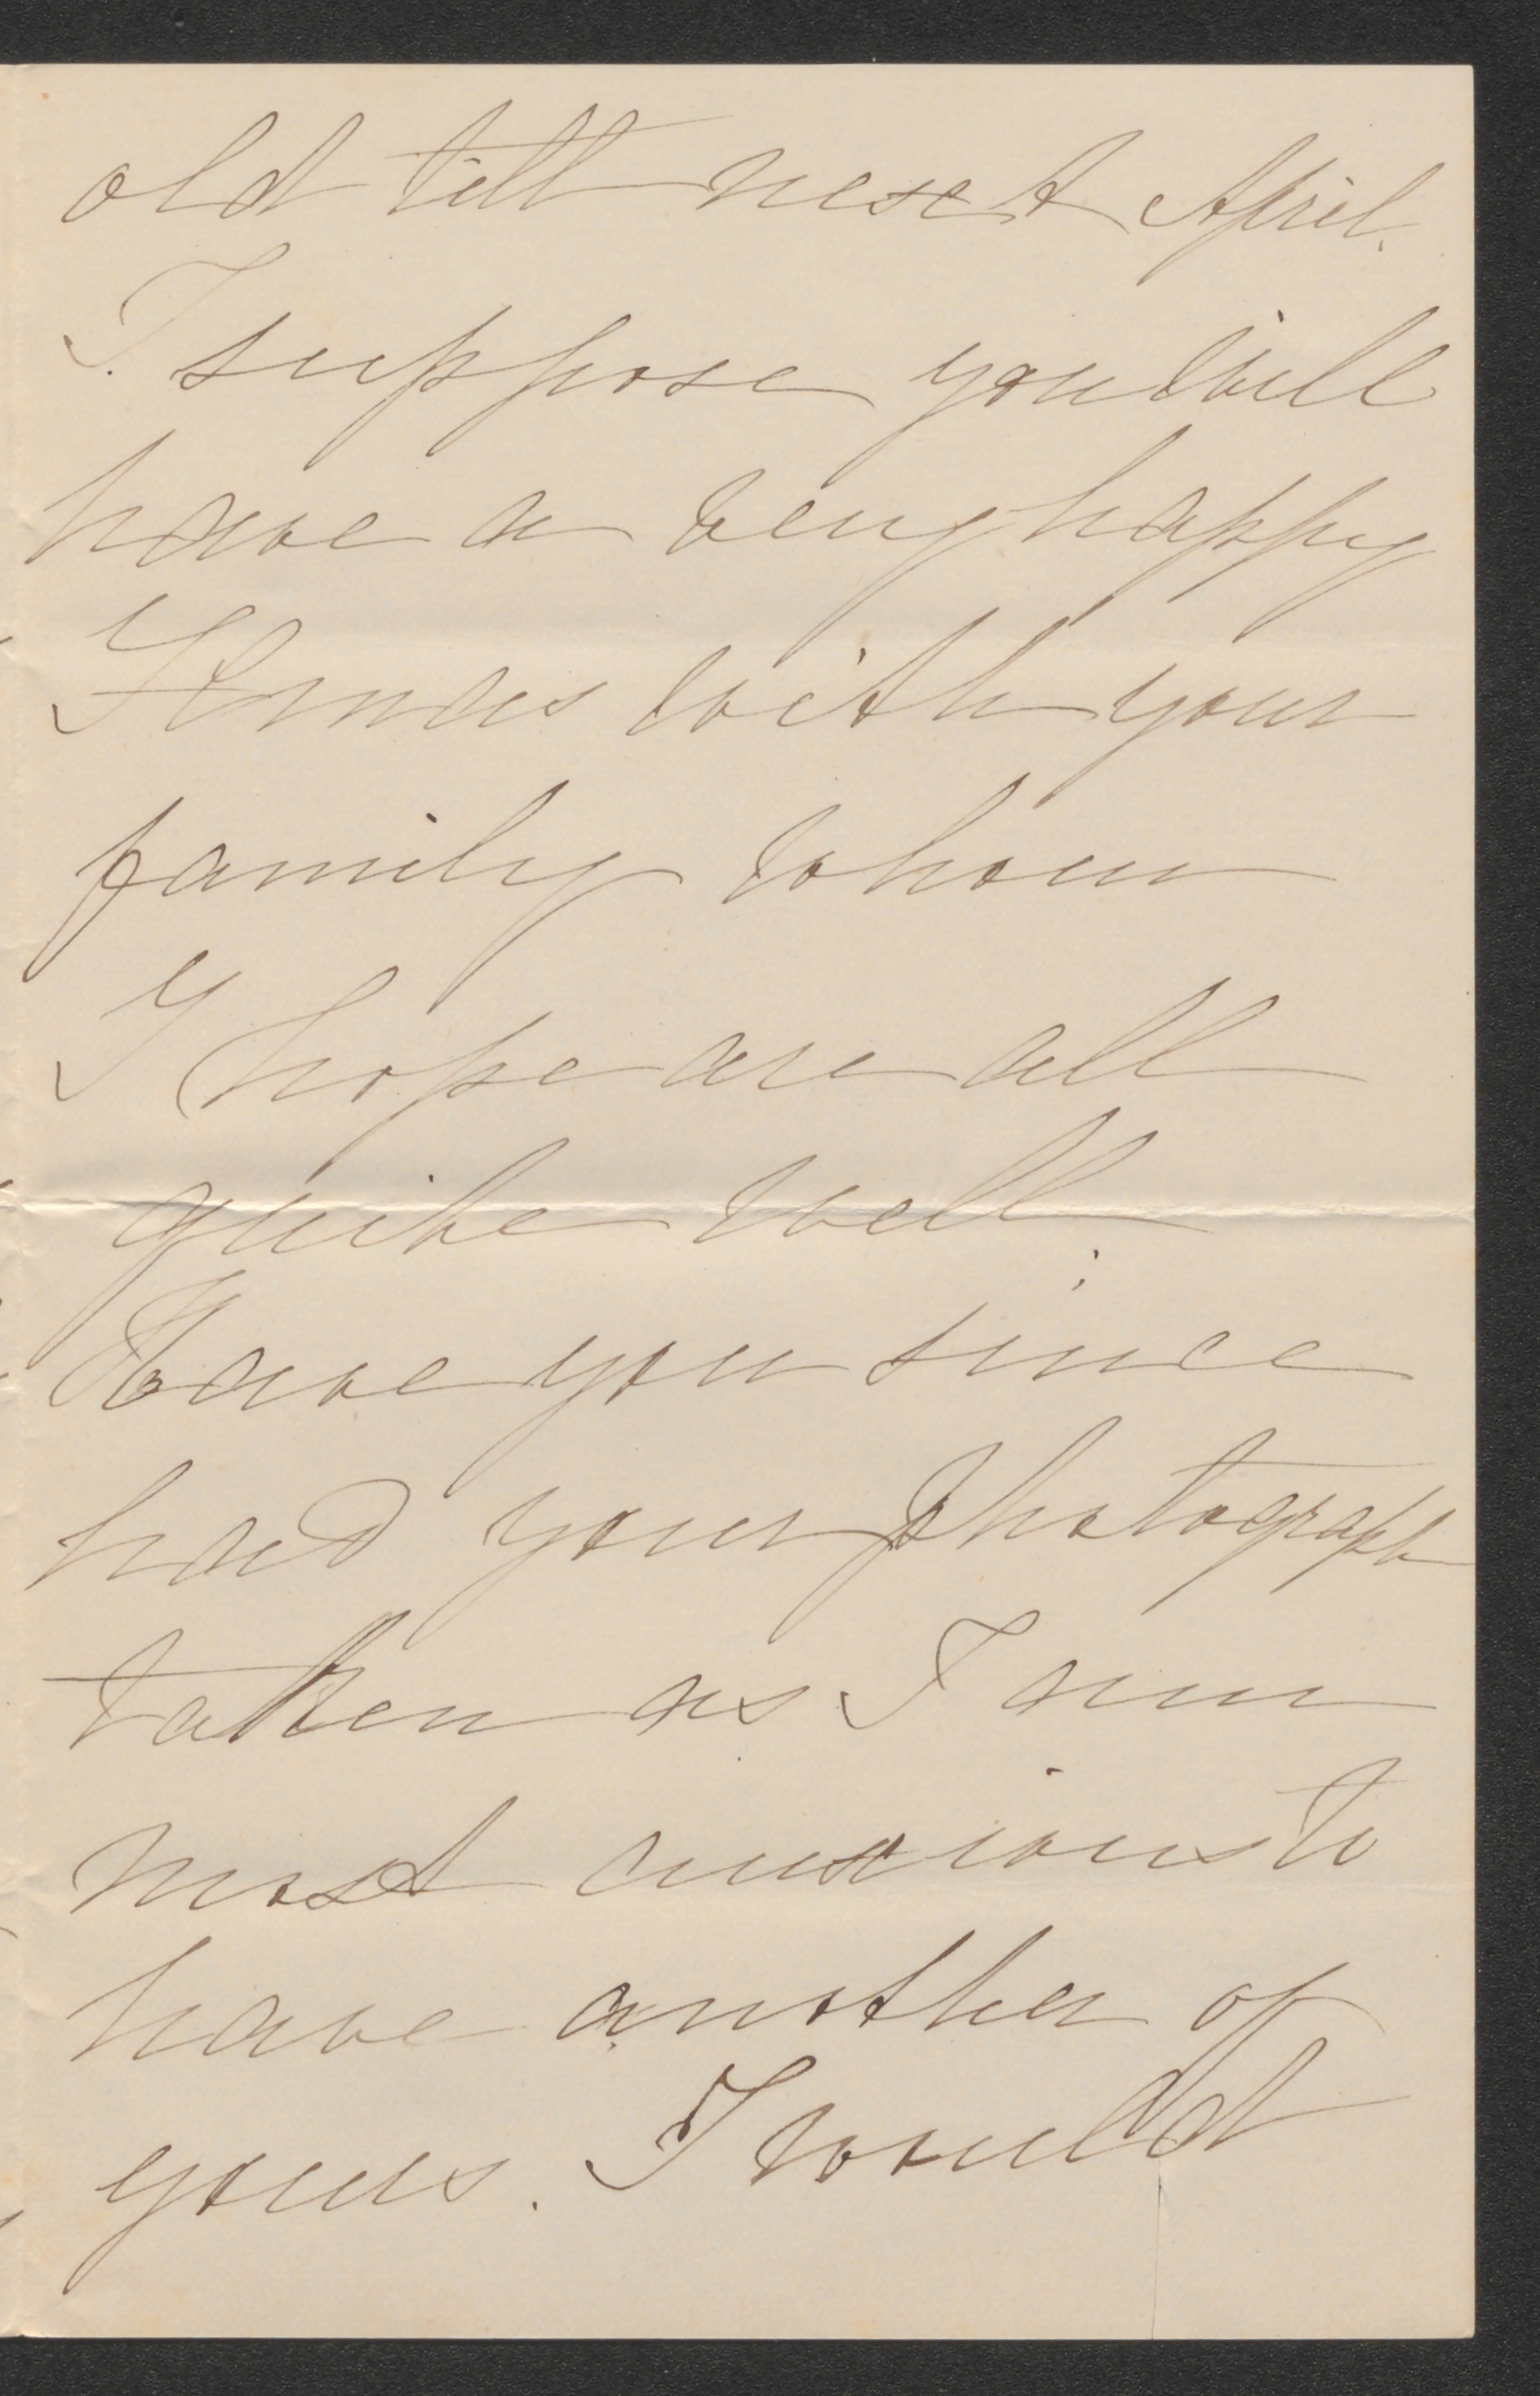 old till next April.
I suppose you will
have a very happy
Xmas with your
family whom
I hope are all
quite well.
Have you since
had your photograph
taken as I am
most anxious to
have another of
yours. I would